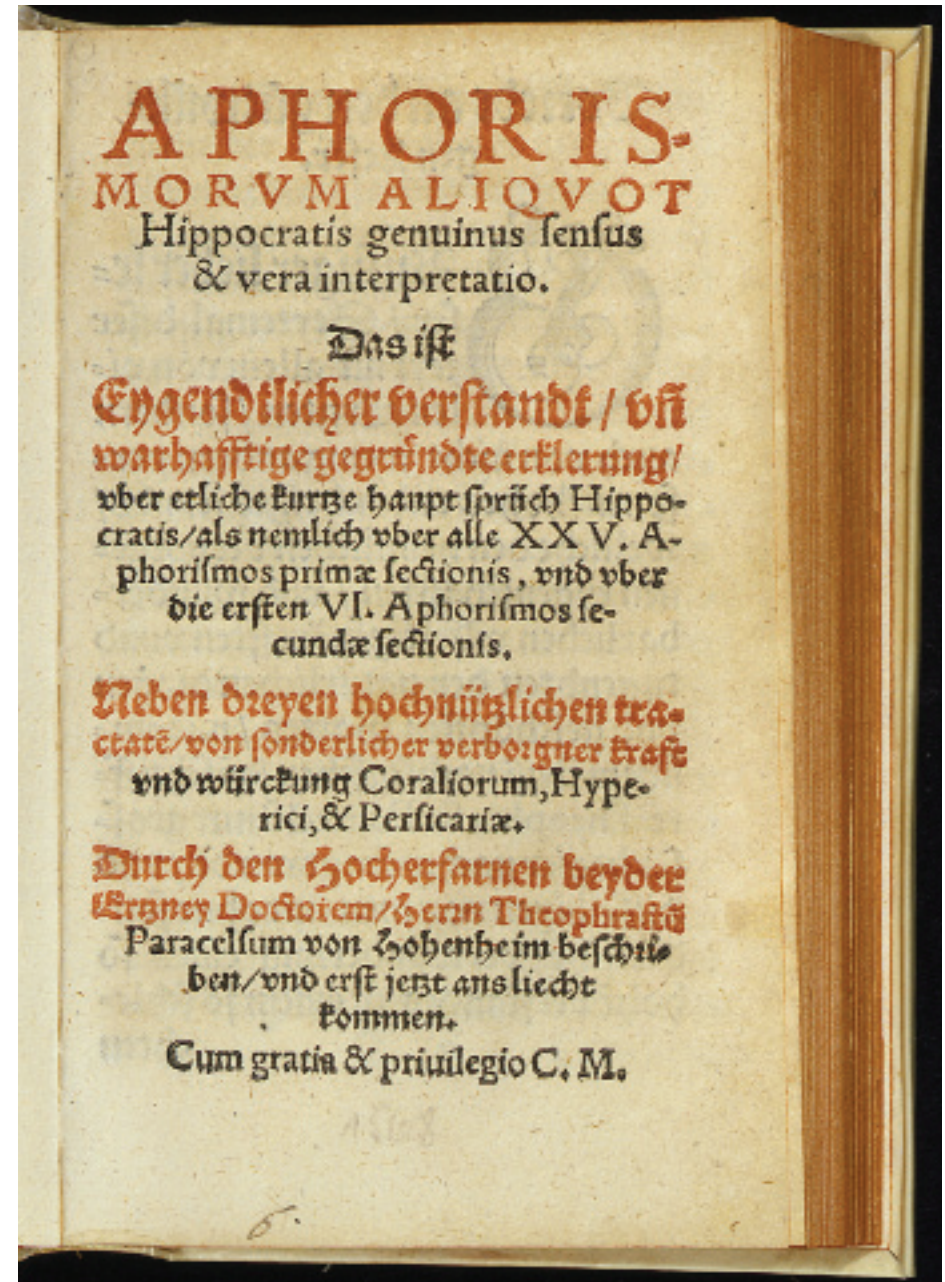 APHORIS-
MORVM ALIQVOT
Hippocratis genuinus ſenſus
& vera interpretatio.
Das iſt
Eygendtlicher verſtandt / vñ
warhafftige gegründte erklerung/
vber etliche kurtze haupt ſprüch Hippo-
cratis/als nemlich vber alle XXV. A-
phoriſmos primæ ſectionis, vnd vber
die erſten VI. Aphoriſmos ſe-
cundæ ſectionis.
Neben dreyen hochnützlichen tra-
ctatē/von ſonderlicher verborgner krafft
vnd würckung Coraliorum, Hype-
rici, & Perſicariæ.
Durch den Hocherfarnen beyder
Ertzney Doctorem/Herrn Theophraſtū
Paracelſum von Hohenheim beſchri-
ben/vnd erſt jetzt ans liecht
kommen.
Cum gratia & priuilegio C. M.
6.